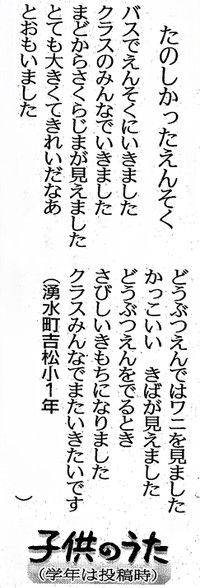 たのしかったえんそく
バスでえんそくにいきました
クラスのみんなでいきました
まどからさくらじまが見えました
とても大きくてきれいだなあ
とおもいました
どうぶつえんではワニを見ました
かっこいい　きばが見えました
どうぶつえんをでるとき
さびしいきもちになりました
クラスみんなでまたいきたいです
（湧水町吉松小1年　　　　）
子供のうた
（学年は投稿時）